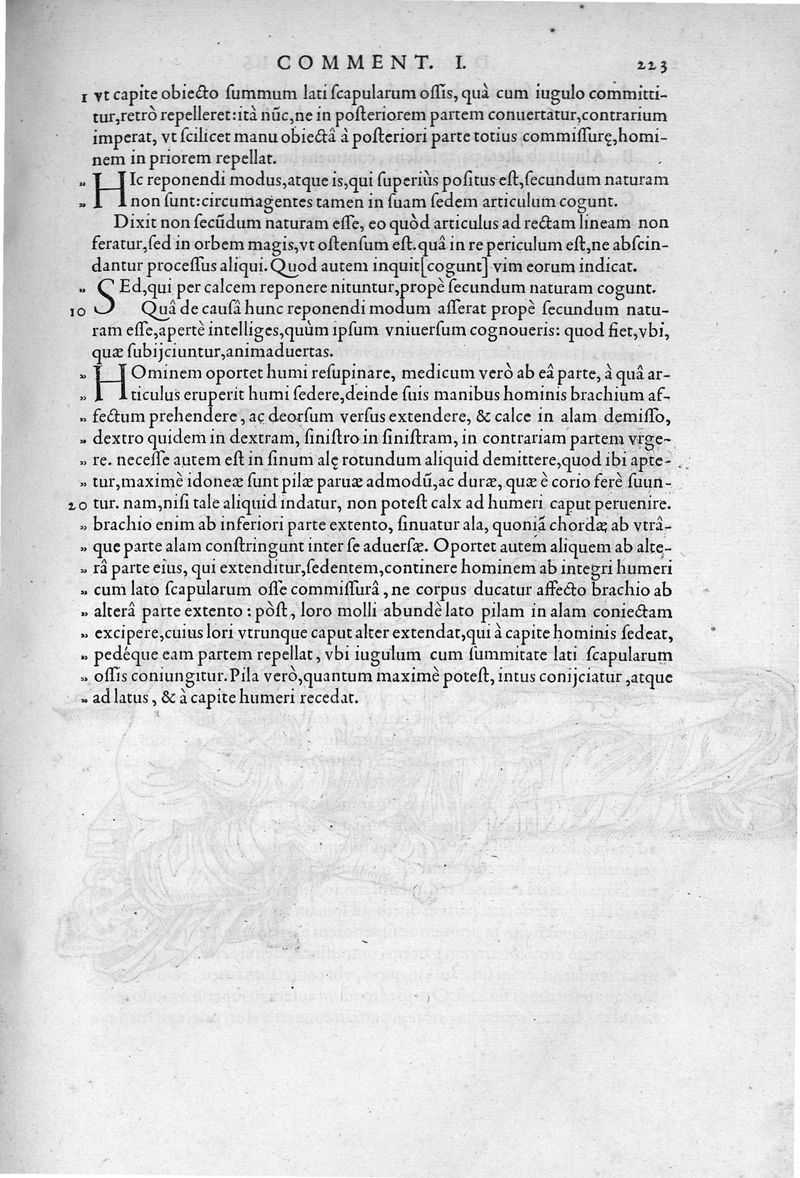 COMMENT. I. 223
1 vt capite obiecto ſummum lati ſcapularum oſſis, quà cum iugulo committi-
tur,retrò repelleret:ità nūc,ne in poſteriorem partem conuertatur,contrarium
imperat, vt ſcilicet manu obiectâ à poſteriori parte totius commiſſurę,homi-
nem in priorem repellat.
" HIc reponendi modus,atque is,qui ſuperiùs poſitus eſt,ſecundum naturam
" non ſunt:circumagentes tamen in ſuam ſedem articulum cogunt.
Dixit non ſecūdum naturam eſſe, eo quòd articulus ad rectam lineam non
feratur,ſed in orbem magis,vt oſtenſum eſt.quâ in re periculum eſt,ne abſcin-
dantur proceſſus aliqui.Quod autem inquit[cogunt] vim eorum indicat.
" SEd,qui per calcem reponere nituntur,propè ſecundum naturam cogunt.
10 Quâ de cauſâ hunc reponendi modum aſſerat propè ſecundum natu-
ram eſſe,apertè intelliges,quùm ipſum vniuerſum cognoueris: quod fiet,vbi,
quæ ſubijciuntur,animaduertas.
" HOminem oportet humi reſupinare, medicum verò ab eâ parte, à quâ ar-
" ticulus eruperit humi ſedere,deinde ſuis manibus hominis brachium af-
" fectum prehendere, ac deorſum verſus extendere, & calce in alam demiſſo,
" dextro quidem in dextram, ſiniſtro in ſiniſtram, in contrariam partem vrge-
" re. neceſſe autem eſt in ſinum alę rotundum aliquid demittere,quod ibi apte-
" tur,maximè idoneæ ſunt pilæ paruæ admodū,ac duræ, quæ è corio ferè ſuun-
20 tur. nam,niſi tale aliquid indatur, non poteſt calx ad humeri caput peruenire.
" brachio enim ab inferiori parte extento, ſinuatur ala, quoniā chordæ ab vtrâ-
" que parte alam conſtringunt inter ſe aduerſæ. Oportet autem aliquem ab altę-
" râ parte eius, qui extenditur,ſedentem,continere hominem ab integri humeri
" cum lato ſcapularum oſſe commiſſurâ, ne corpus ducatur affecto brachio ab
" alterâ parte extento: pòſt, loro molli abundè lato pilam in alam coniectam
" excipere,cuius lori vtrunque caput alter extendat,qui à capite hominis ſedeat,
" pedéque eam partem repellat, vbi iugulum cum ſummitate lati ſcapularum
" oſſis coniungitur.Pila verò,quantum maximè poteſt, intus conijciatur ,atque
" ad latus, & à capite humeri recedat.